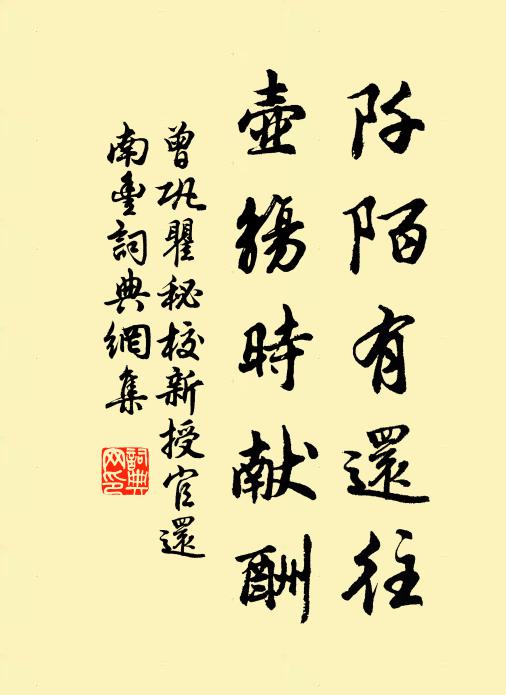 阡陌有還往
壺觴時献酬
曾巩瞿秘校新授官還
南豊詞典網集
詞典網印